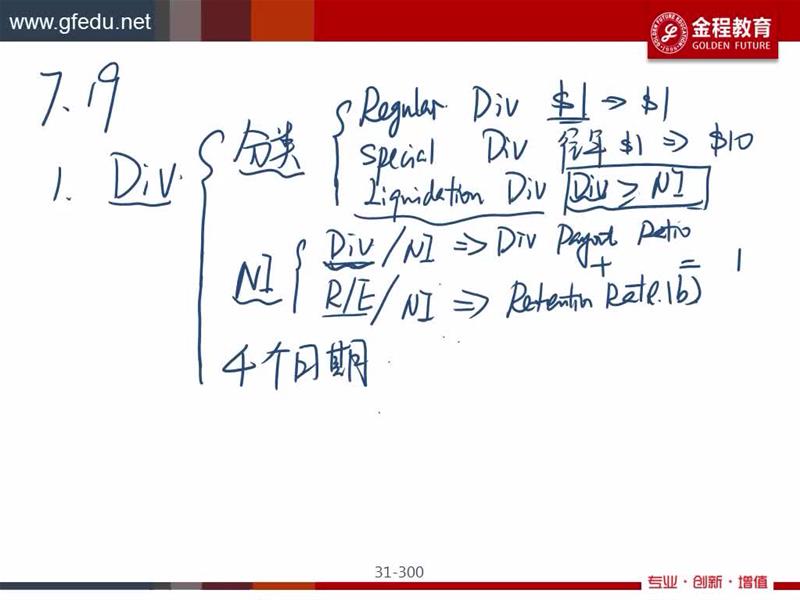 www.gfedu.net
金程教育
GOLDEN FUTURE
7.19
1. Div
分类
Regular Div $1 ⇒ $1
Special Div 往年 $1 ⇒ $10
Liquidation Div Div ≥ NI
NI
Div/NI ⇒ Div Payout Ratio
+ = 1
R/E/NI ⇒ Retention Rate (b)
4个日期
31-300
专业·创新·增值